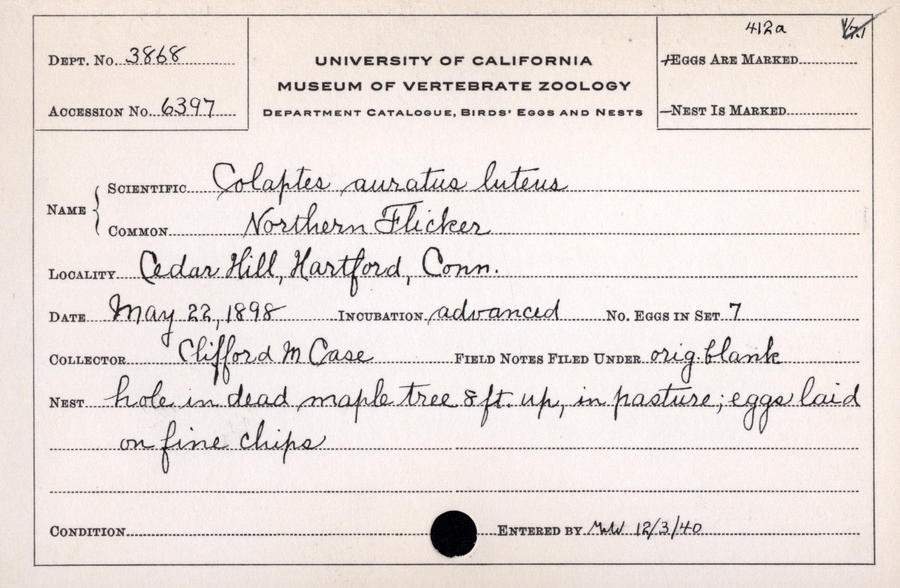 412a
DEPT. NO. 3868
UNIVERSITY OF CALIFORNIA
EGGS ARE MARKED
MUSEUM OF VERTEBRATE ZOOLOGY
ACCESSION NO. 6397
DEPARTMENT CATALOGUE, BIRDS' EGGS AND NESTS
NEST IS MARKED
NAME
SCIENTIFIC Colaptes auratus luteus
COMMON Northern Flicker
LOCALITY Cedar Hill, Hartford, Conn.
DATE May 22, 1898 INCUBATION advanced NO. EGGS IN SET 7
COLLECTOR Clifford M Case FIELD NOTES FILED UNDER orig. blank
NEST hole in dead maple tree 8 ft. up, in pasture; eggs laid
on fine chips
CONDITION ENTERED BY 12/3/40